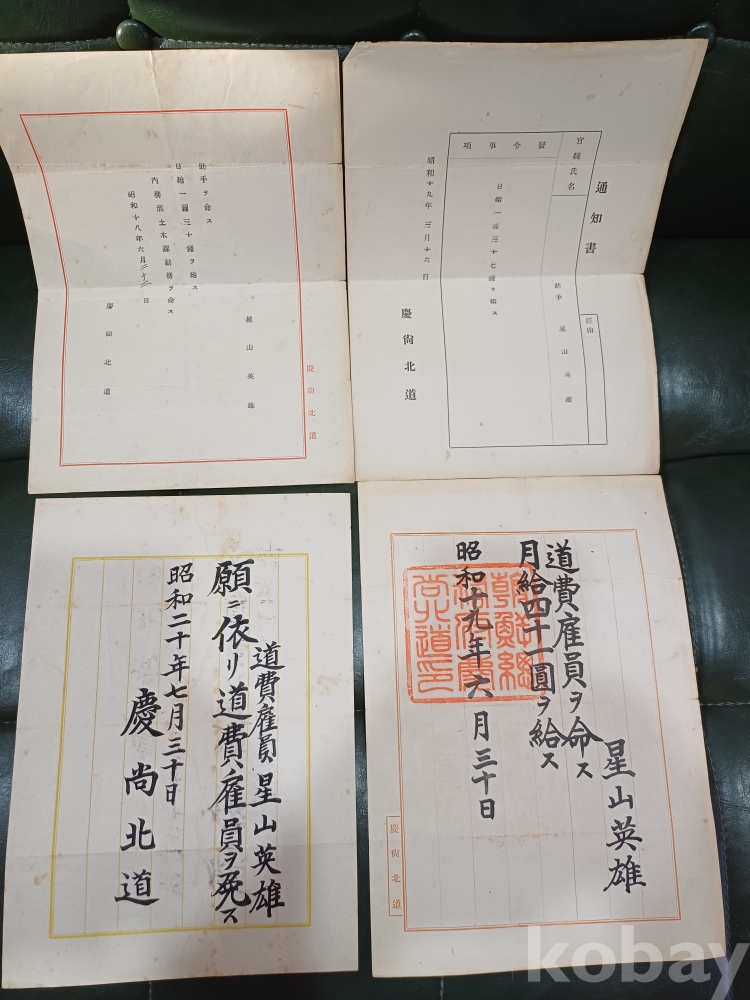 星山英雄
助手ヲ命ス
日給一圓三十錢ヲ給ス
内務部土木課勤務ヲ命ス
昭和十八年六月二十二日
慶尚北道
慶尚北道
通知書
官職氏名
經由
助手 星山英雄
發令事項
日給一圓三十七錢ヲ給ス
昭和十九年三月十六日
慶尚北道
道費雇員 星山英雄
願ニ依リ道費雇員ヲ免ス
昭和二十年七月三十日
慶尚北道
星山英雄
道費雇員ヲ命ス
月給四十一圓ヲ給ス
昭和十九年六月三十日
朝鮮總
督府慶
尚北道印
慶尚北道
kobay